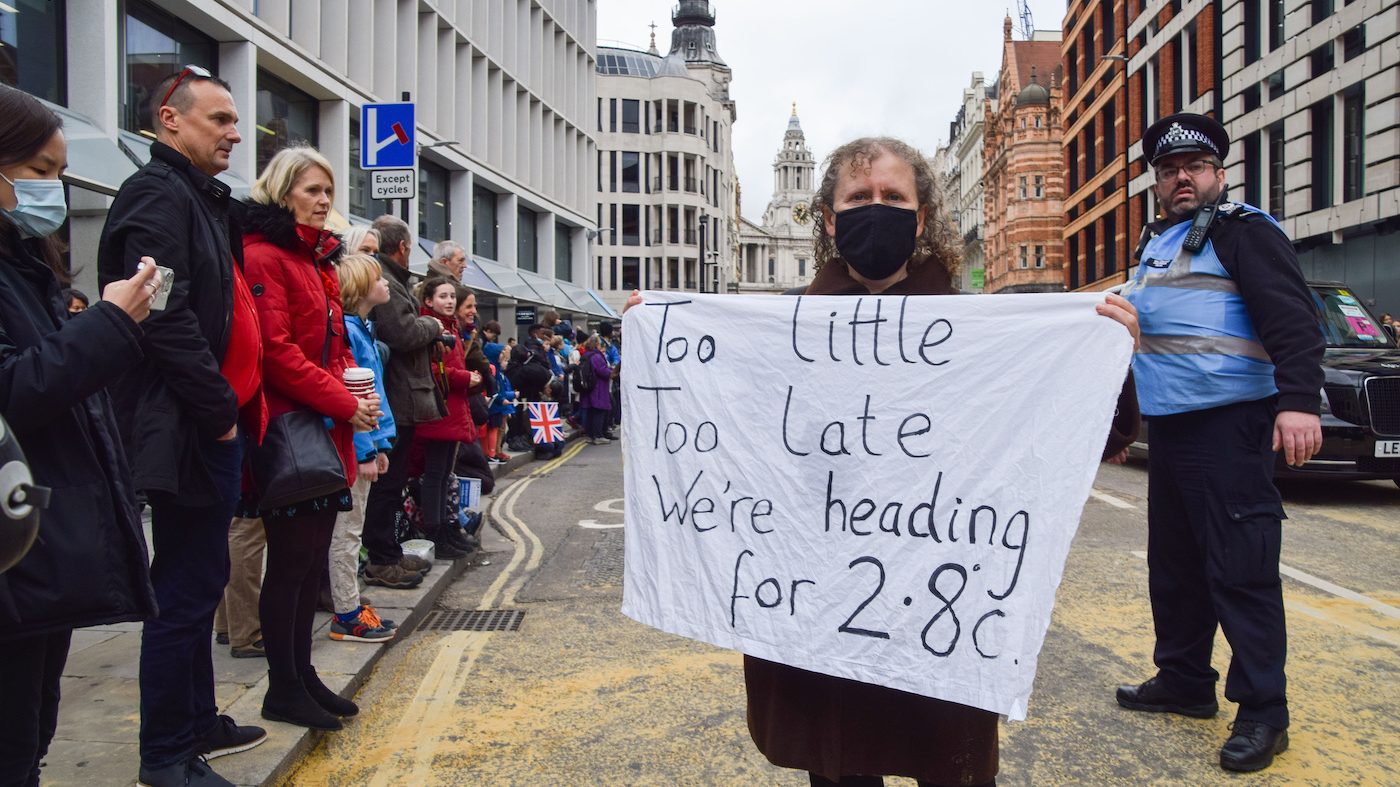 Except
cycles
Too little
Too late
We're heading
for 2.8°c.
LE